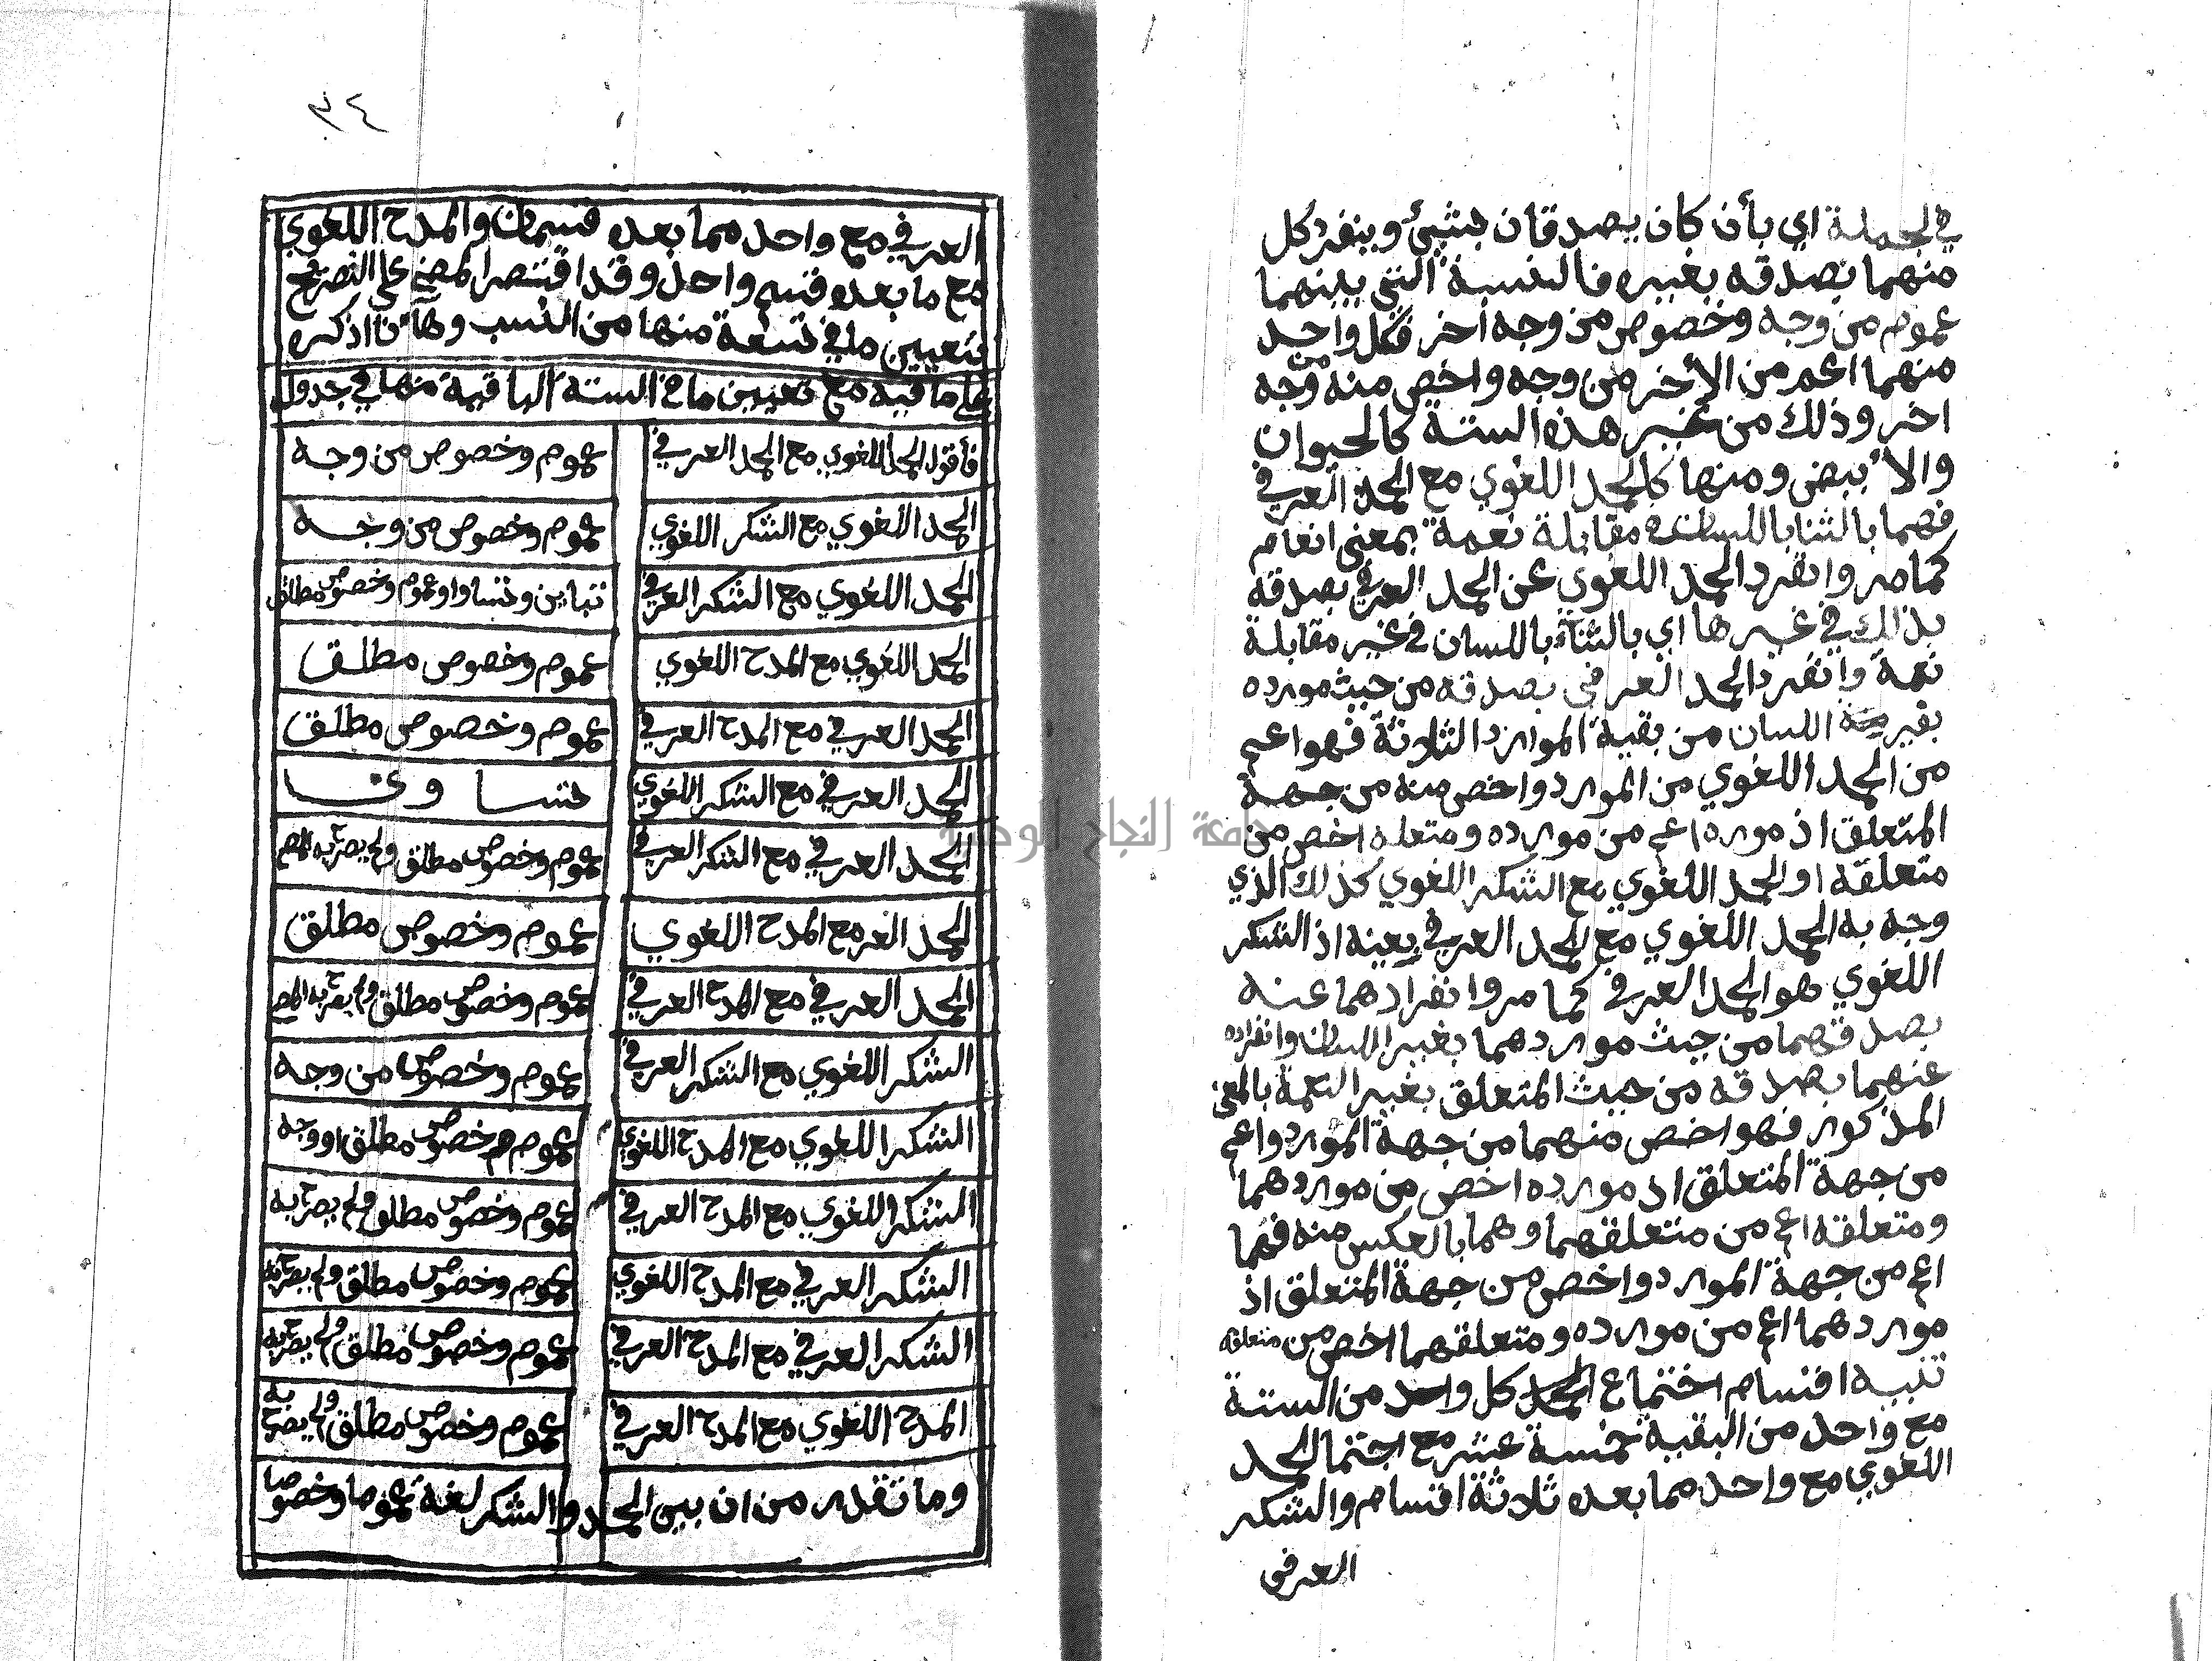 في الجملة اي بأن كان يصدقان بشيئ وينفرد كل
منهما بصدقه بغيره فالنسبة التي بينهما
عموم من وجه وخصوص من وجه اخر فكل واحد
منهما اعم من الأخر من وجه واخص منه من وجه
اخر وذلك من غير هذه الستة كالحيوان
والابيض ومنها كالحمد اللغوي مع الحمد العرفي
فهما بالثنا باللسان في مقابلة نعمة بمعنى انعام
كما مر وانفرد الحمد اللغوي عن الحمد العرفي بصدقه
بذلك في غيرها اي بالثناء باللسان في غير مقابلة
نعمة وانفرد الحمد العرفي بصدقه من حيث مورده
بغير اللسان من بقية الموارد الثلاثة فهو اعم
من الحمد اللغوي من الموارد واخص منه من جهة
المتعلق اذ مورده اعم من مورده ومتعلقه اخص من
متعلقه او الحمد اللغوي مع الشكر اللغوي كذلك الذي
وجه به الحمد اللغوي مع الحمد العرفي بعينه اذ الشكر
اللغوي هو الحمد العرفي كما مر وانفرادهما عنه
بصدقهما من حيث موردهما بغير اللسان وانفراده
عنهما بصدقه من حيث المتعلق بغير النعمة بالمعنى
المذكور فهو اخص منهما من جهة المورد واعم
من جهة المتعلق اذ مورده اخص من موردهما
ومتعلقه اعم من متعلقهما وهما بالعكس منه فهما
اعم من جهة المورد واخص من جهة المتعلق اذ
موردهما اعم من مورده ومتعلقهما اخص من متعلقه
تنبيه اقسام اجتماع الحمد كل واحد من الستة
مع واحد من البقية خمسة عشر مع اجتما الحمد
اللغوي مع واحد مما بعده ثلاثة اقسام والشكر
العرفي
٣٤
العرفي مع واحد مما بعده قسمان والمدح اللغوي
مع ما بعده قسم واحد وقد اقتصر المص على التصريح
بتعيين ما في تسعة منها من النسب وها انا اذكره
على ما فيه مع تعيين ما في الستة الباقية منها في جدول
فأقول الحمد اللغوي مع الحمد العرفي عموم وخصوص من وجه
الحمد اللغوي مع الشكر اللغوي عموم وخصوص من وجه
الحمد اللغوي مع الشكر العرفي تباين وتساو او عموم وخصوص مطلق
الحمد اللغوي مع المدح اللغوي عموم وخصوص مطلق
الحمد العرفي مع المدح العرفي عموم وخصوص مطلق
الحمد العرفي مع الشكر اللغوي تساوى
الحمد العرفي مع الشكر العرفي عموم وخصوص مطلق ولم يصرح به المص
الحمد العر مع المدح اللغوي عموم وخصوص مطلق
الحمد العرفي مع المدح العرفي عموم وخصوص مطلق ولم يصرح به المص
الشكر اللغوي مع الشكر العرفي عموم وخصوص من وجه
الشكر اللغوي مع المدح اللغوي عموم خصوص مطلق او وجه
الشكر اللغوي مع المدح العرفي عموم وخصوص مطلق ولم يصرح به
الشكر العرفي مع المدح اللغوي عموم وخصوص مطلق ولم يصرح به
الشكر العرفي مع المدح العرفي عموم وخصوص مطلق ولم يصرح به
المدح اللغوي مع المدح العرفي عموم وخصوص مطلق ولم يصرح به
وما تقدم من ان بين الحمد والشكر لغة عموما وخصوصا
جامعة النجاح الوطنية